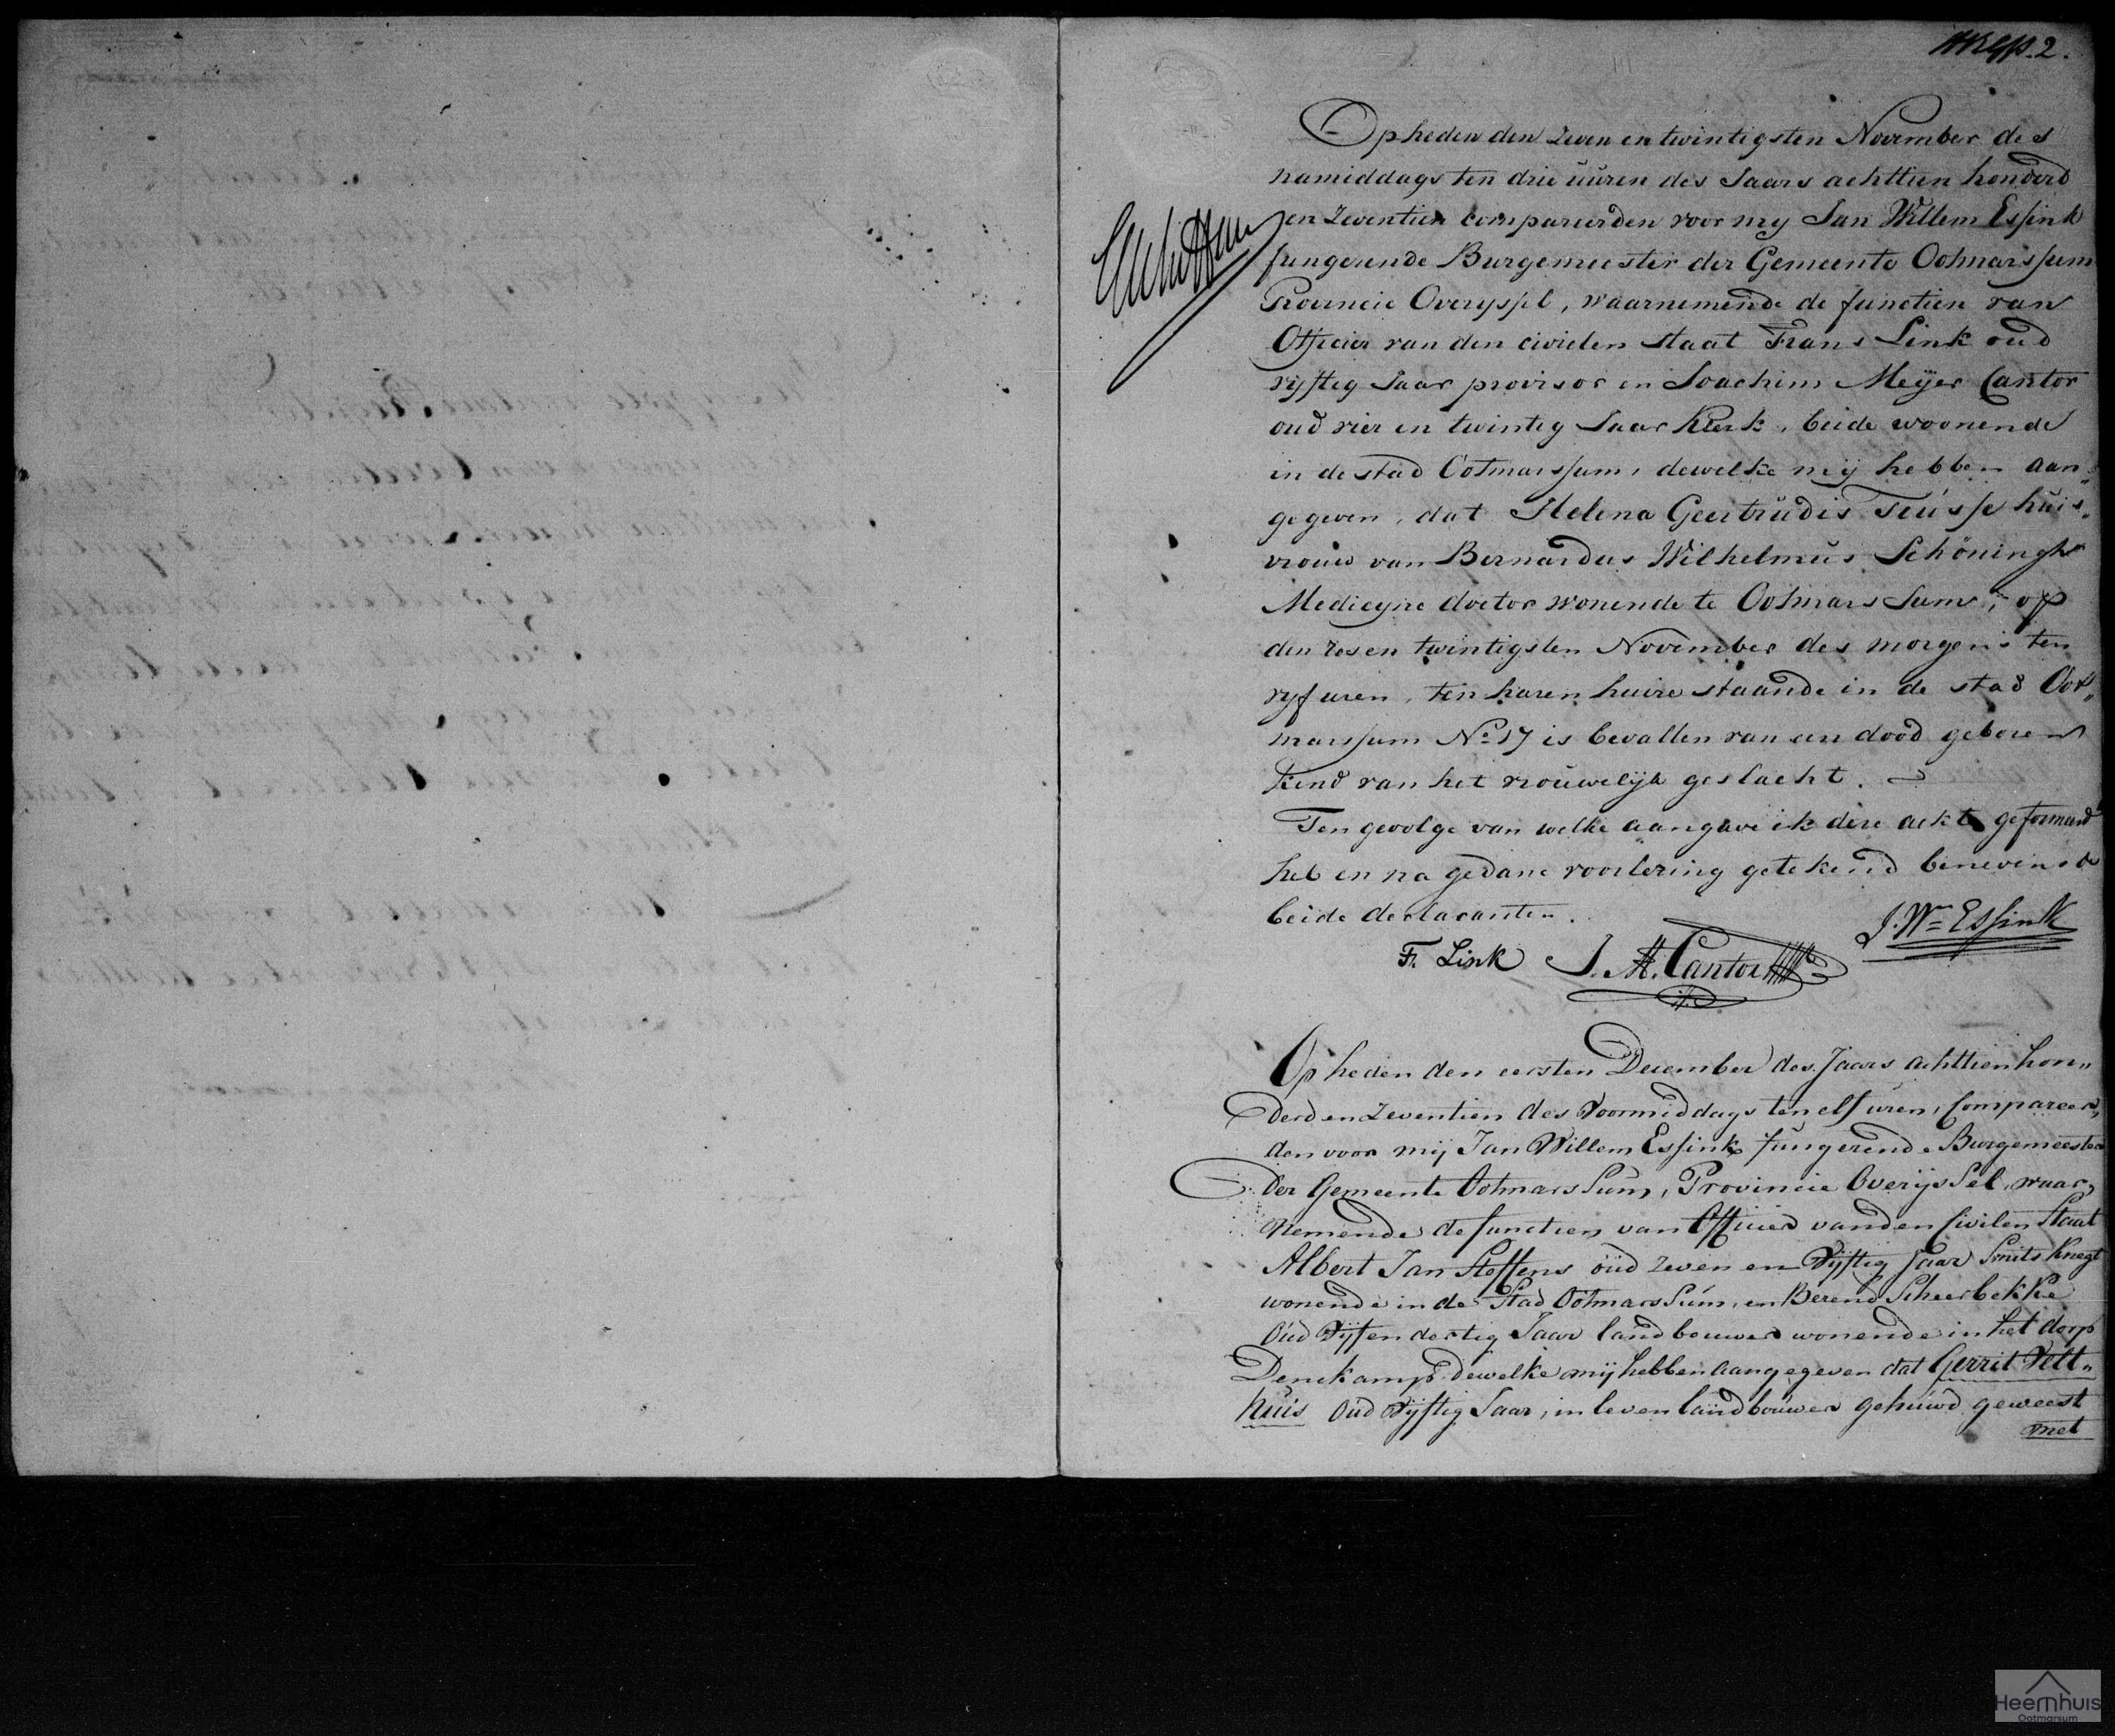 2.
Op heden den zeven en twintigsten November des
namiddags ten drie uuren des Jaars achttien honderd
en zeventien compareerden voor my Jan Willem Essink
fungerende Burgemeester der Gemeente Ootmarssum
Provincie Overyssel, waarnemende de functien van
Officier van den civielen staat Frans Link oud
vyftig Jaar provisor en Joachim Meÿer Cantor
oud vier en twintig Jaar Klerk, beide woonende
in de stad Ootmarssum, dewelke mÿ hebben aan„
gegeven, dat Helena Geertrudis Teússe huis„
vrouw van Bernardus Wilhelmus Schöningh
Medicyne doctor wonende te Ootmarssum, op
den zes en twintigsten November des morgens ten
vyf uren, ten haren huize staande in de stad Oot„
marssum No 17 is bevallen van een dood geboren
kind van het vrouwelÿk geslacht.
Ten gevolge van welke aangave ik deze ackte geformeerd
heb en na gedane voorlezing getekend benevens de
beide declaranten.
J. Wm Essink
F. Link J. M. Cantor
Op heden den eersten December des Jaars achttien hon„
derd en Zeventien des Voormiddags ten elf uren, Compareer„
den voor mij Jan Willem Essink fungerende Burgemeester
der Gemeente Ootmarssum, Provincie Overijssel, waar„
nemende de functien van Officier van den Civilen Staat
Albert Jan Steffens oud zeven en Vijftig Jaar Smits Knegt
wonende in de Stad Ootmarssum, en Berend Scheerbekke
Oud Vijf en dertig Jaar landbouwer wonende in het dorp
Denekamp dewelke mij hebben aangegeven dat Gerrit Velt„
huis Oud Vijftig Jaar, in leven landbouwer gehuwd geweest
met
Heemhuis
Ootmarsum